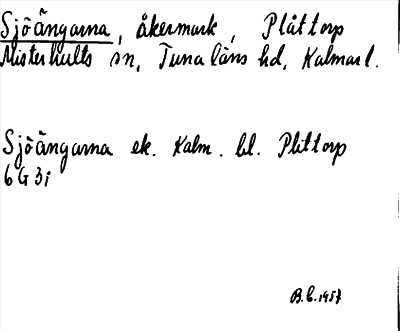 Sjöängarna, åkermark, Plåttorp
Misterhults sn, Tunaläns hd, Kalmar l.
Sjöängarna ek. Kalm. bl. Plittorp
6 G 3i
B.C. 1957